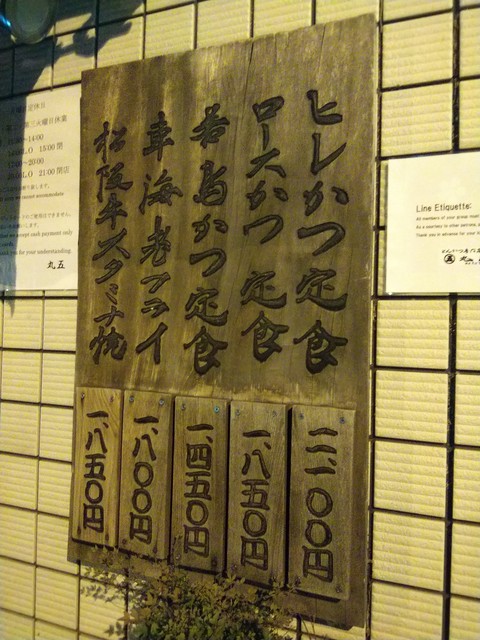 ヒレかつ定食
ロースかつ定食
若鳥かつ定食
車海老フライ
松阪牛スタミナ焼
二、一〇〇円
一、八五〇円
一、四五〇円
一、八〇〇円
一、八五〇円
定休日
第三火曜日休業
14:00
L.O 15:00 閉
20:00
L.O 21:00 閉店
accept cash payment only
you for your understanding.
丸五
Line Etiquette:
All members of your group must
As a courtesy to other patrons,
Thank you in advance for your